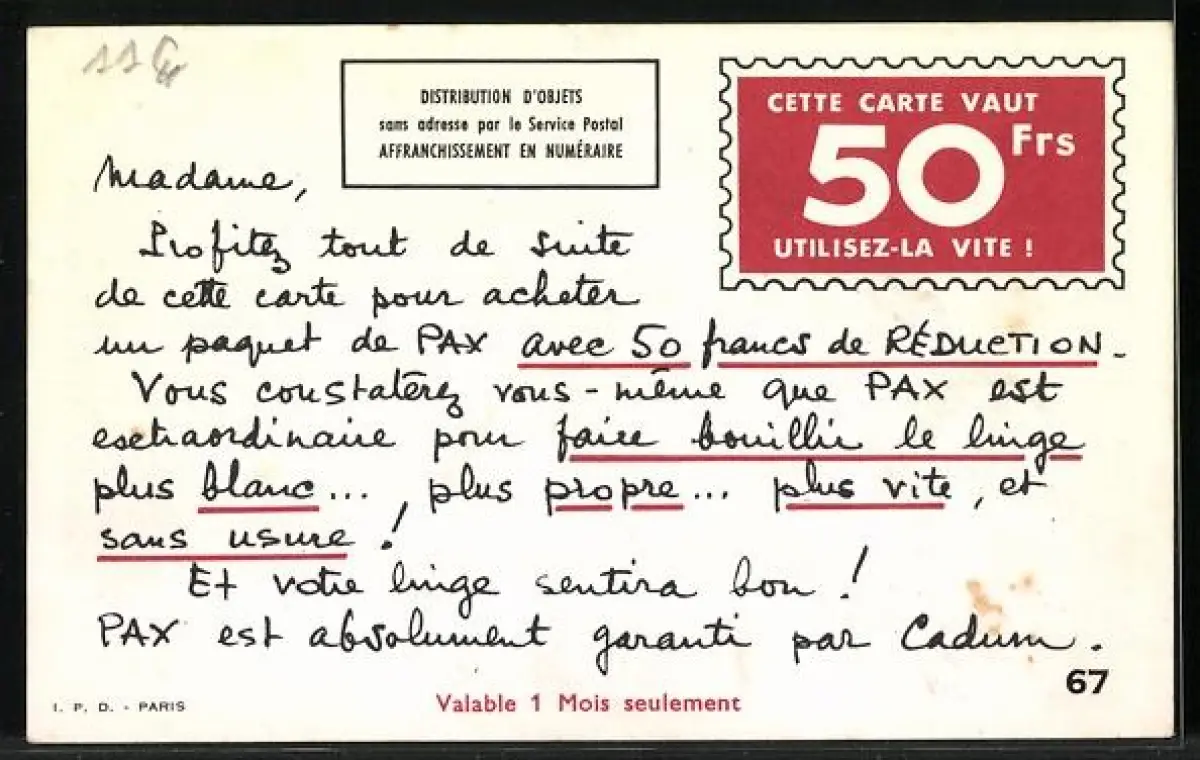 DISTRIBUTION D'OBJETS
sans adresse par le Service Postal
AFFRANCHISSEMENT EN NUMÉRAIRE
CETTE CARTE VAUT
50 Frs
UTILISEZ-LA VITE !
Madame,
Profitez tout de suite
de cette carte pour acheter
un paquet de PAX avec 50 francs de RÉDUCTION.
Vous constaterez vous-même que PAX est
extraordinaire pour faire bouillir le linge
plus blanc..., plus propre... plus vite, et
sans usure !
Et votre linge sentira bon !
PAX est absolument garanti par Cadum.
67
I. P. D. - PARIS
Valable 1 Mois seulement